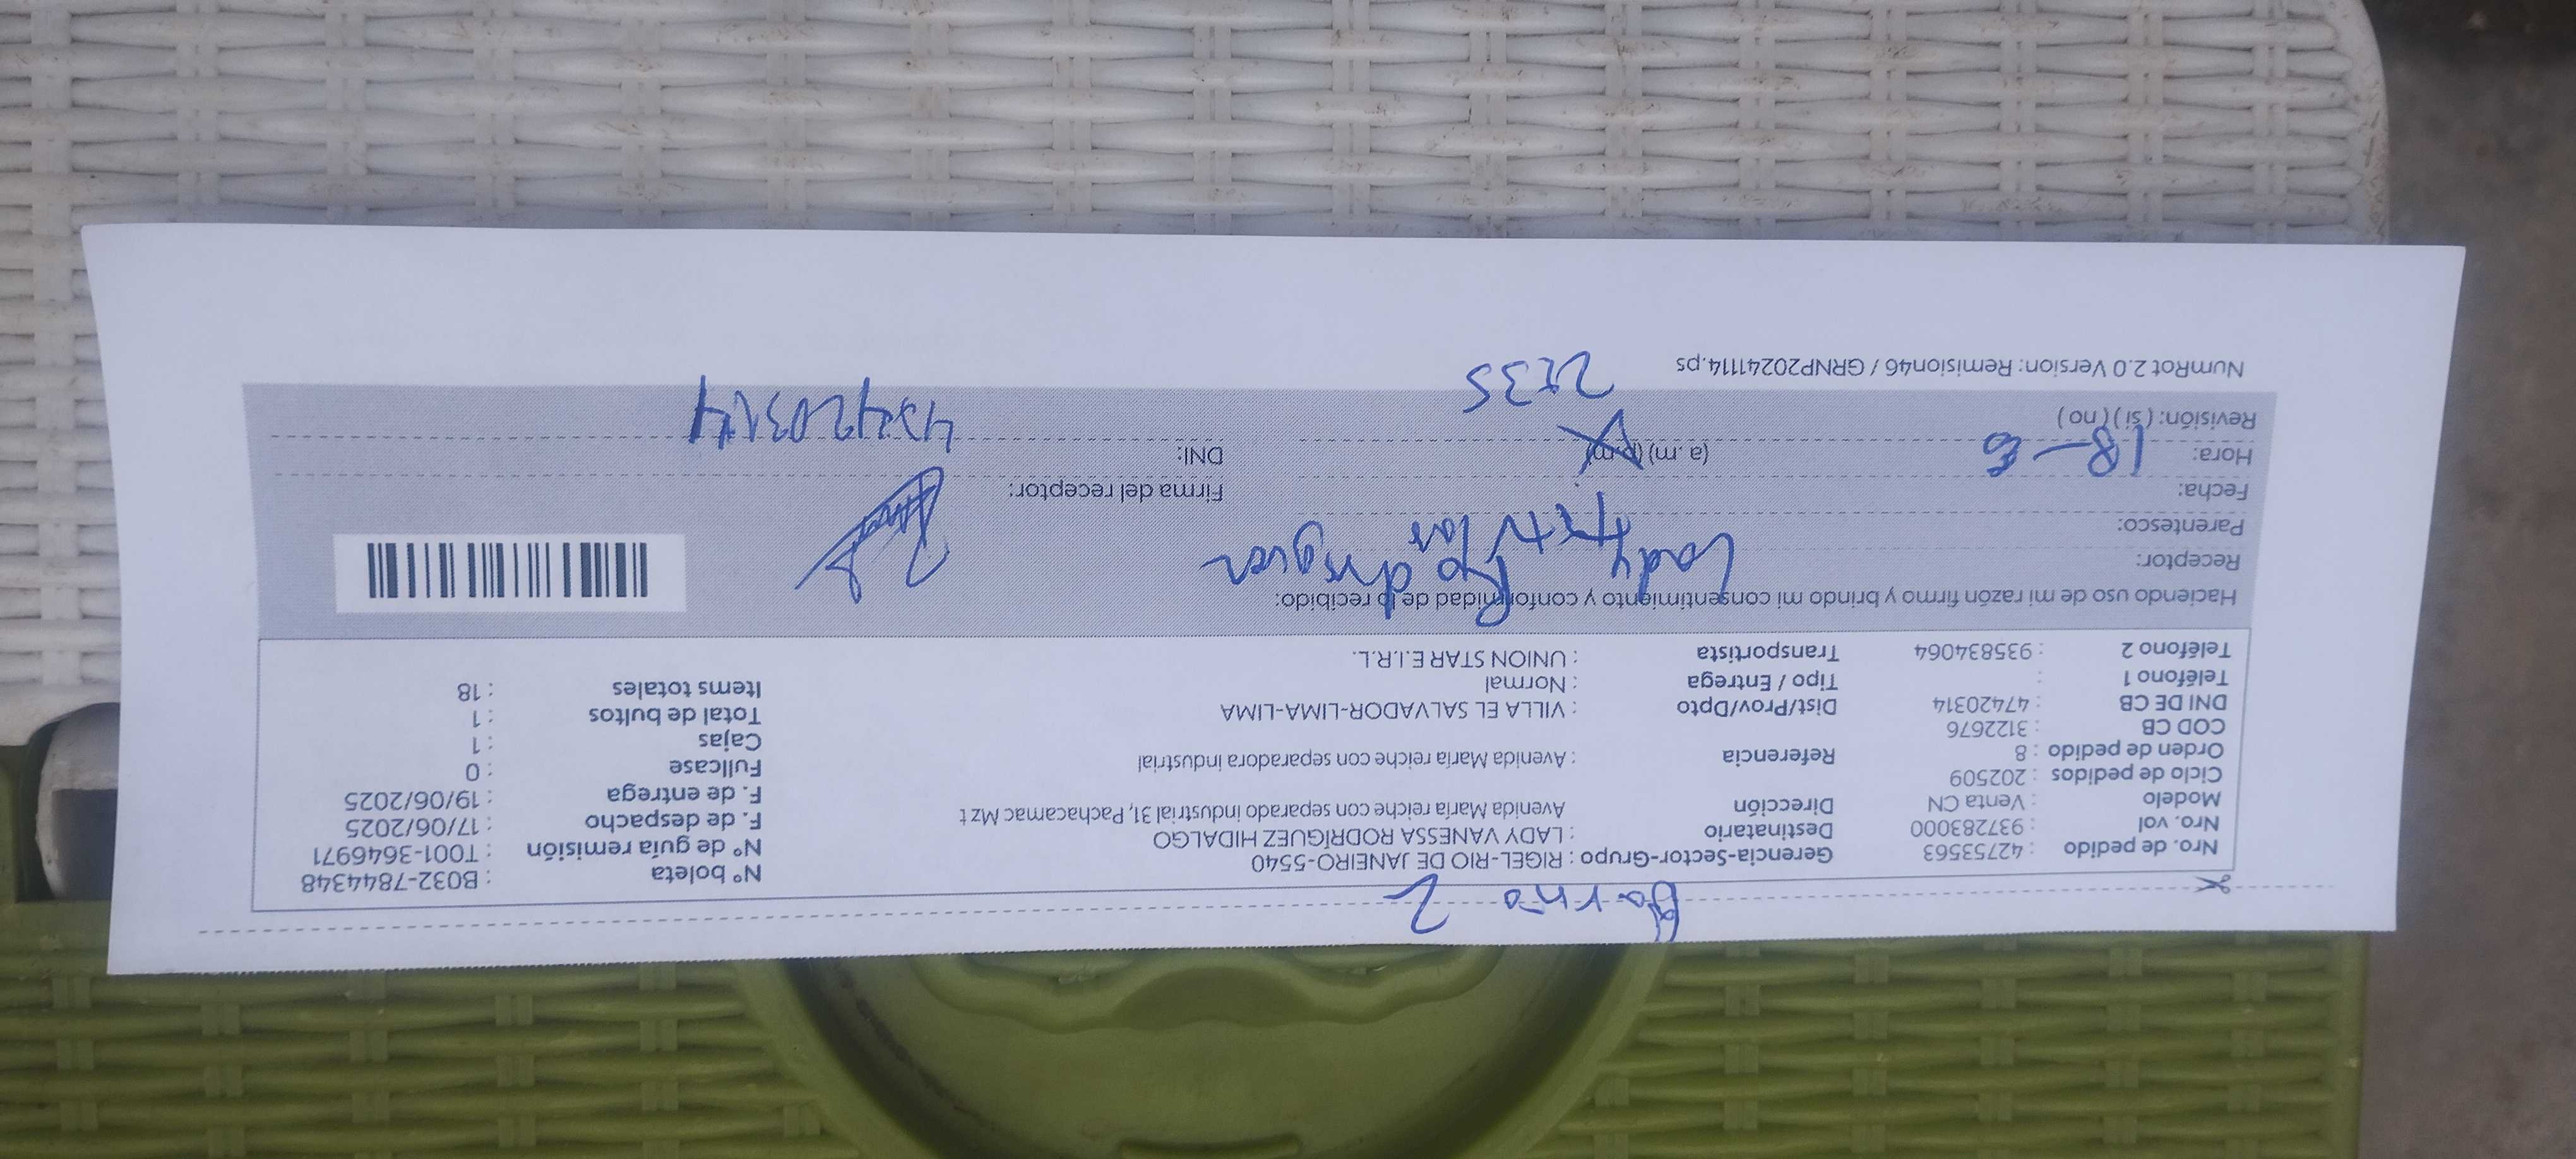 Barno 2
Nro. de pedido : 42753563 Gerencia-Sector-Grupo : RIGEL-RIO DE JANEIRO-5540 N° boleta : B032-7844348
Nro. vol : 937283000 Destinatario : LADY VANESSA RODRÍGUEZ HIDALGO N° de guía remisión : T001-3646971
Modelo : Venta CN Dirección Avenida María reiche con separado industrial 31, Pachacamac Mz t F. de despacho : 17/06/2025
Ciclo de pedidos : 202509 F. de entrega : 19/06/2025
Orden de pedido : 8 Referencia : Avenida María reiche con separadora industrial Fullcase : 0
COD CB : 3122676 Cajas : 1
DNI DE CB : 47420314 Dist/Prov/Dpto : VILLA EL SALVADOR-LIMA-LIMA Total de bultos : 1
Teléfono 1 : Tipo / Entrega : Normal Items totales : 18
Teléfono 2 : 935834064 Transportista : UNION STAR E.I.R.L.
Haciendo uso de mi razón firmo y brindo mi consentimiento y conformidad de lo recibido:
Receptor: Lady Rodriguez
Parentesco: titular
Fecha: Firma del receptor:
Hora: 18-6 (a.m) (p.m) DNI: 47420314
Revisión: (si) (no)
NumRot 2.0 Version: Remision46 / GRNP20241114.ps